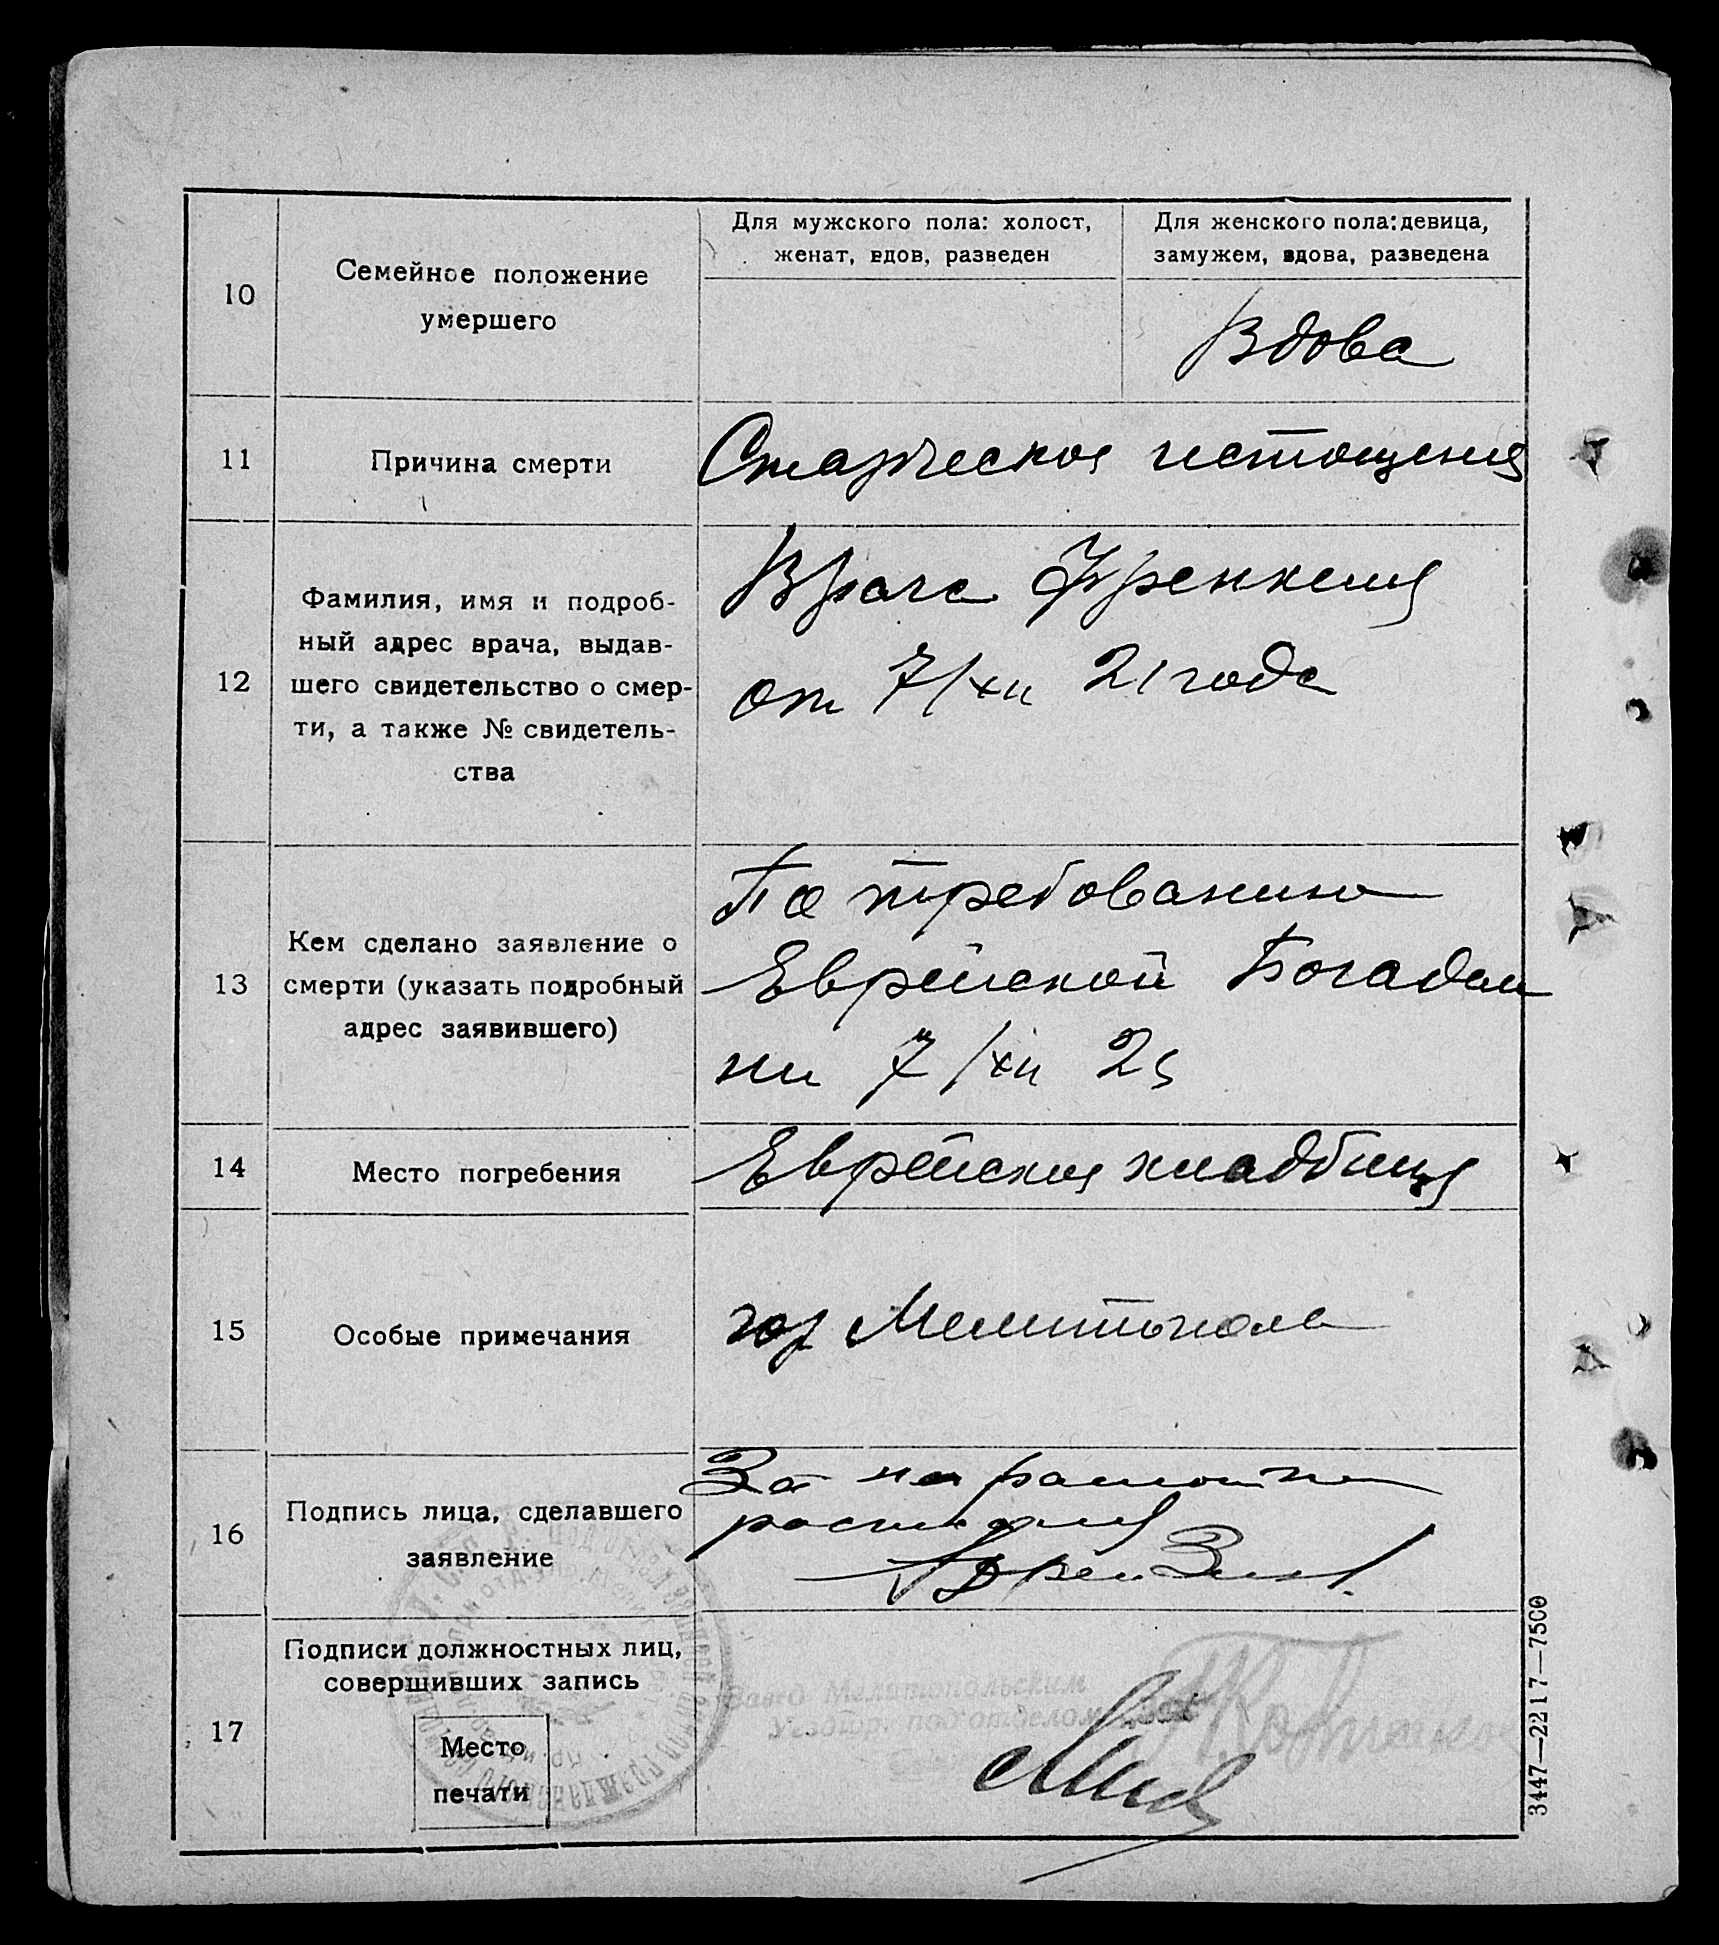 10
Семейное положение
умершего
Для мужского пола: холост,
женат, вдов, разведен
Для женского пола: девица,
замужем, вдова, разведена
Вдова
11
Причина смерти
Старческое истощения
12
Фамилия, имя и подроб-
ный адрес врача, выдав-
шего свидетельство о смер-
ти, а также № свидетель-
ства
Врача Френкеля
от 7/XII 21 года
13
Кем сделано заявление о
смерти (указать подробный
адрес заявившего)
По требованию
Еврейской Богадел
ни 7/XII 21
14
Место погребения
Еврейския кладбища
15
Особые примечания
гор Мелитополя
16
Подпись лица, сделавшего
заявление
За
17
Подписи должностных лиц,
совершивших запись
Место
печати
Завед Мелитопольским
3447—2217—7500